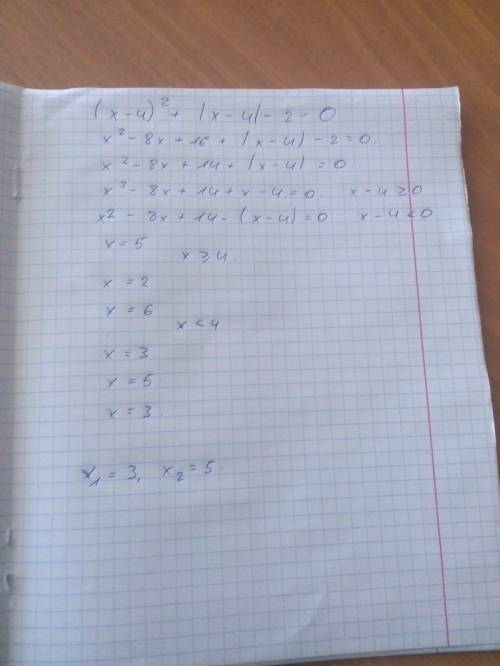 (x-4)² + |x-4| - 2 = 0
x² - 8x + 16 + |x-4| - 2 = 0
x² - 8x + 14 + |x-4| = 0
x² - 8x + 14 + x - 4 = 0 x - 4 ≥ 0
x² - 8x + 14 - (x-4) = 0 x - 4 < 0
x = 5
x ≥ 4
x = 2
x = 6
x < 4
x = 3
x = 5
x = 3
x₁ = 3, x₂ = 5